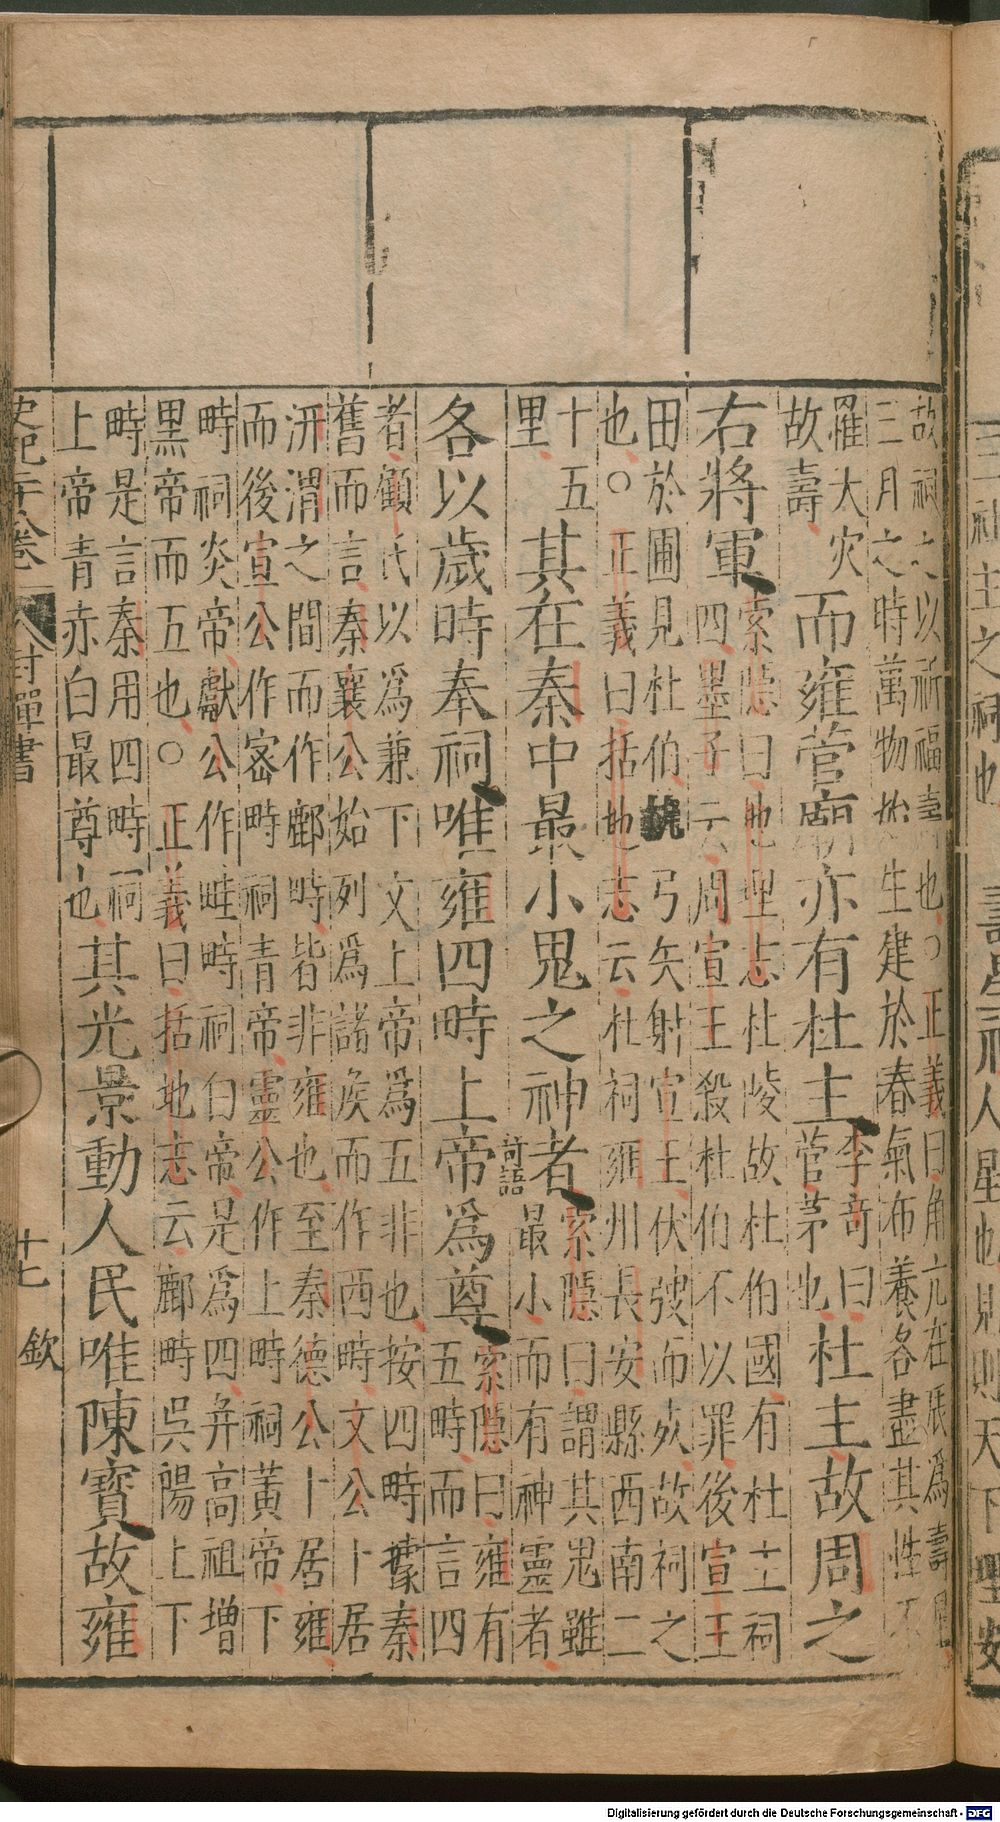 故祠之以祈福壽也○正義曰角亢在辰爲壽星
三月之時萬物始生建於春氣布養各盡其性不
罹大灾
故壽
而雍菅廟亦有杜主
李奇曰
菅茅也
杜主故周之
右將軍
索隱曰地理志杜陵故杜伯國有杜主祠
四墨子云周宣王殺杜伯不以罪後宣王
田於圃見杜伯執弓矢射宣王伏弢而死故祠之
也○正義曰括地志云杜祠雍州長安縣西南二
十五
里
其在秦中最小鬼之神者
奇語
索隱曰謂其鬼雖
最小而有神靈者
各以歲時奉祠唯雍四時上帝爲尊
索隱曰雍有
五時而言四
者顧氏以爲兼下文上帝爲五非也按四時據秦
舊而言秦襄公始列爲諸侯而作西時文公卜居
汧渭之間而作鄜時皆非雍也至秦德公卜居雍
而後宣公作密時祠青帝靈公作上時祠黃帝下
時祠炎帝獻公作畦時祠白帝是爲四并高祖增
黑帝而五也○正義曰括地志云鄜時吳陽上下
時是言秦用四時祠
上帝青赤白最尊也
其光景動人民唯陳寶故雍
史記二十八卷
封禪書
十七
欽
Digitalisierung gefördert durch die Deutsche Forschungsgemeinschaft - DFG